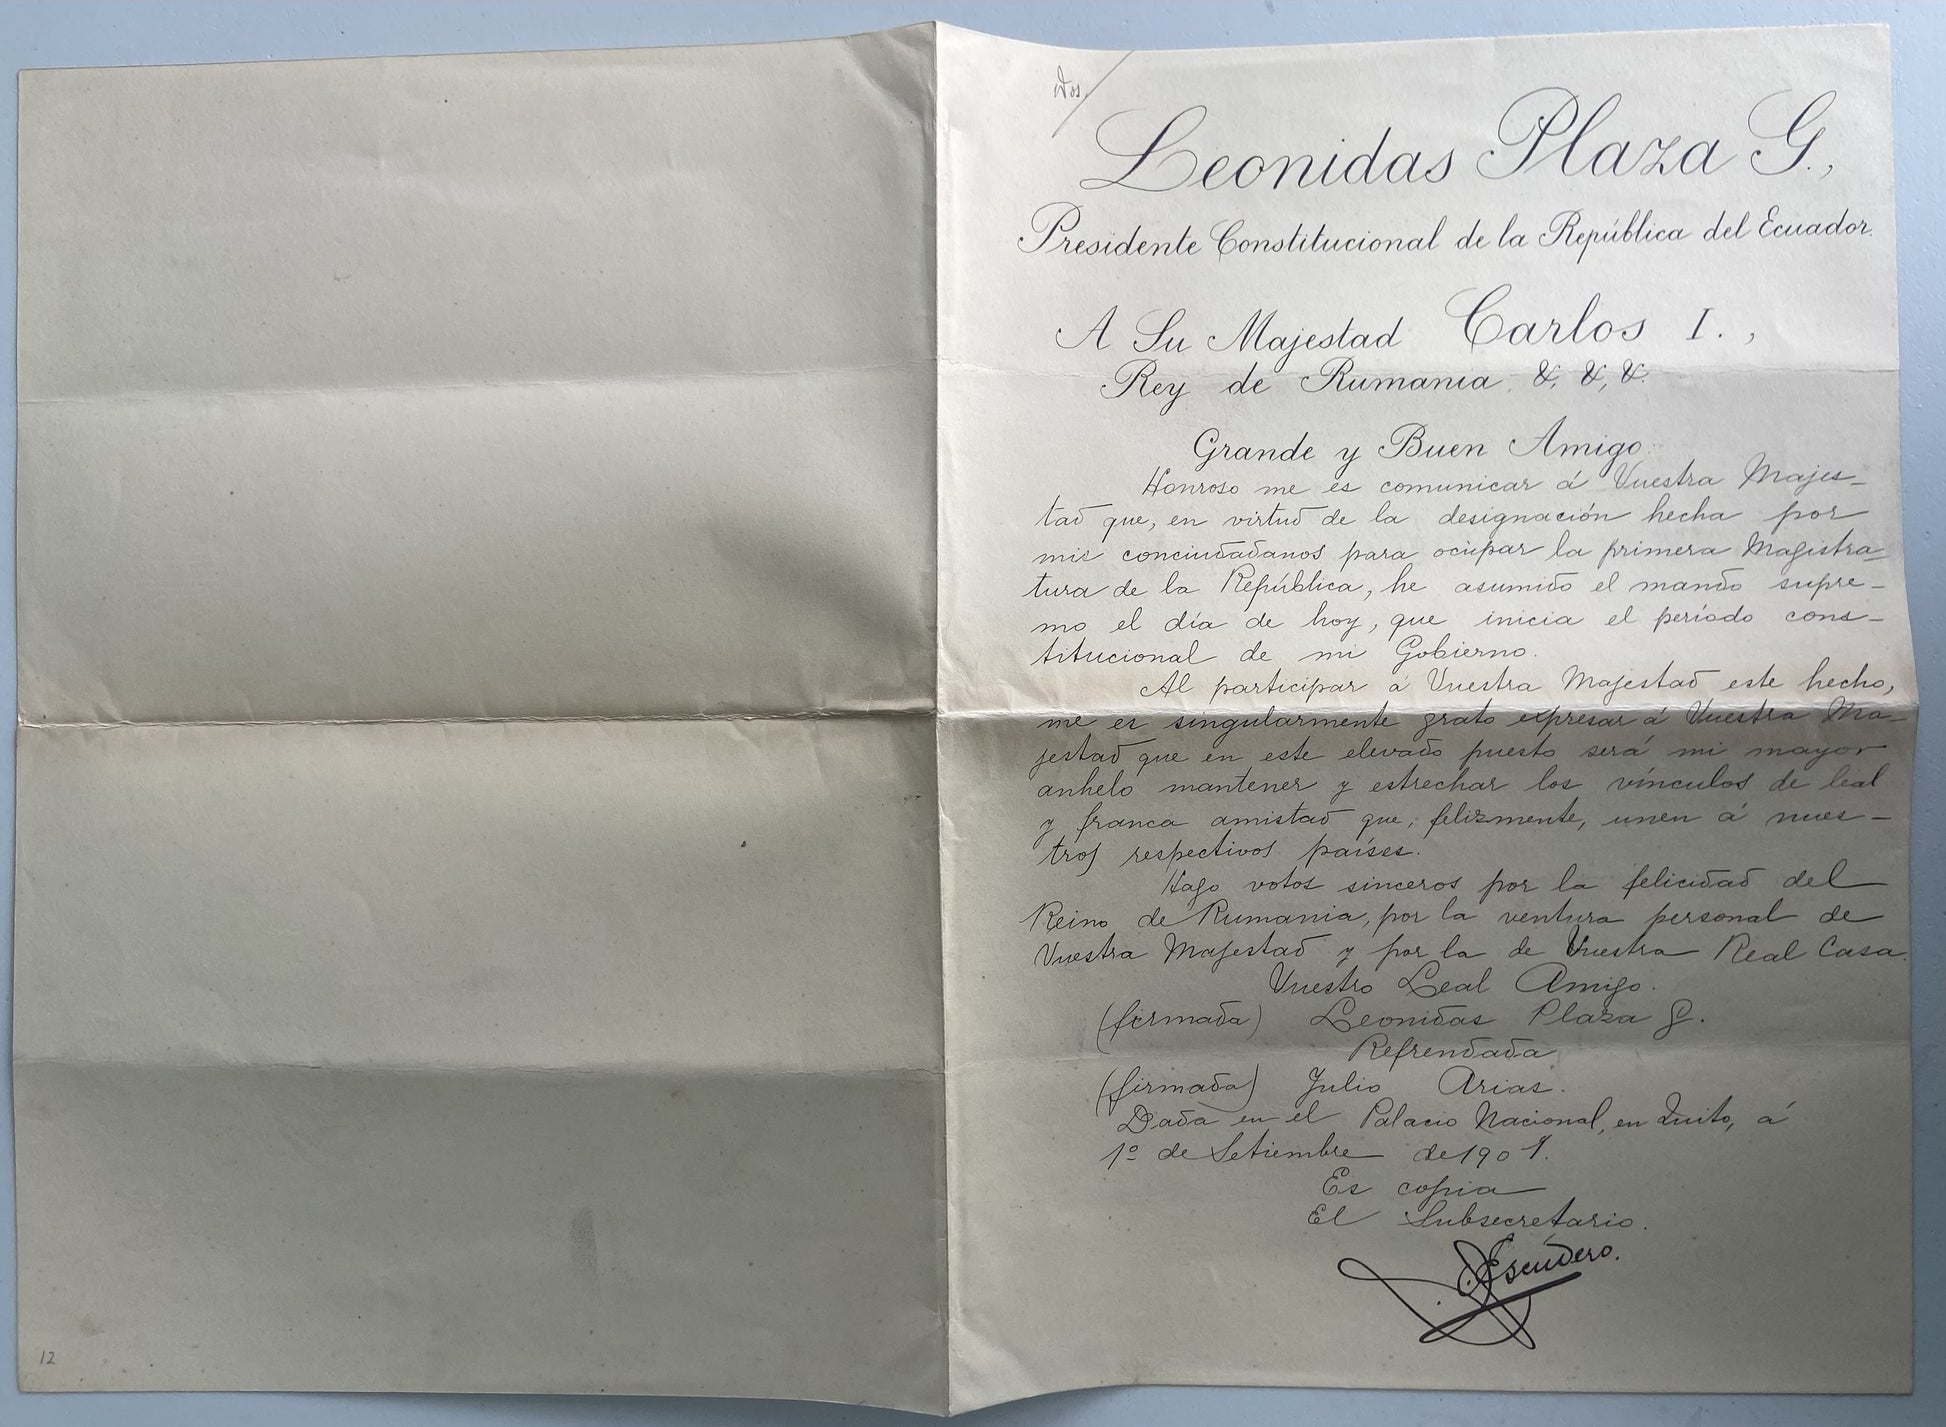 Leonidas Plaza G.,
Presidente Constitucional de la República del Ecuador.
A Su Majestad Carlos I.,
Rey de Rumania &, &, &.
Grande y Buen Amigo:
Honroso me es comunicar á Vuestra Majes-
tad que, en virtud de la designación hecha por
mis conciudadanos para ocupar la primera Magistra-
tura de la República, he asumido el mando supre-
mo el día de hoy, que inicia el período cons-
titucional de mi Gobierno.
Al participar á Vuestra Majestad este hecho,
me es singularmente grato expresar á Vuestra Ma-
jestad que en este elevado puesto será mi mayor
anhelo mantener y estrechar los vínculos de leal
y franca amistad que, felizmente, unen á nues-
tros respectivos países.
Hago votos sinceros por la felicidad del
Reino de Rumania, por la ventura personal de
Vuestra Majestad y por la de Vuestra Real Casa.
Vuestro Leal Amigo.
(firmada) Leonidas Plaza G.
Refrendada
(firmada) Julio Arias.
Dada en el Palacio Nacional, en Quito, á
1º de Setiembre de 1901.
Es copia
El Subsecretario.
Escudero.
12